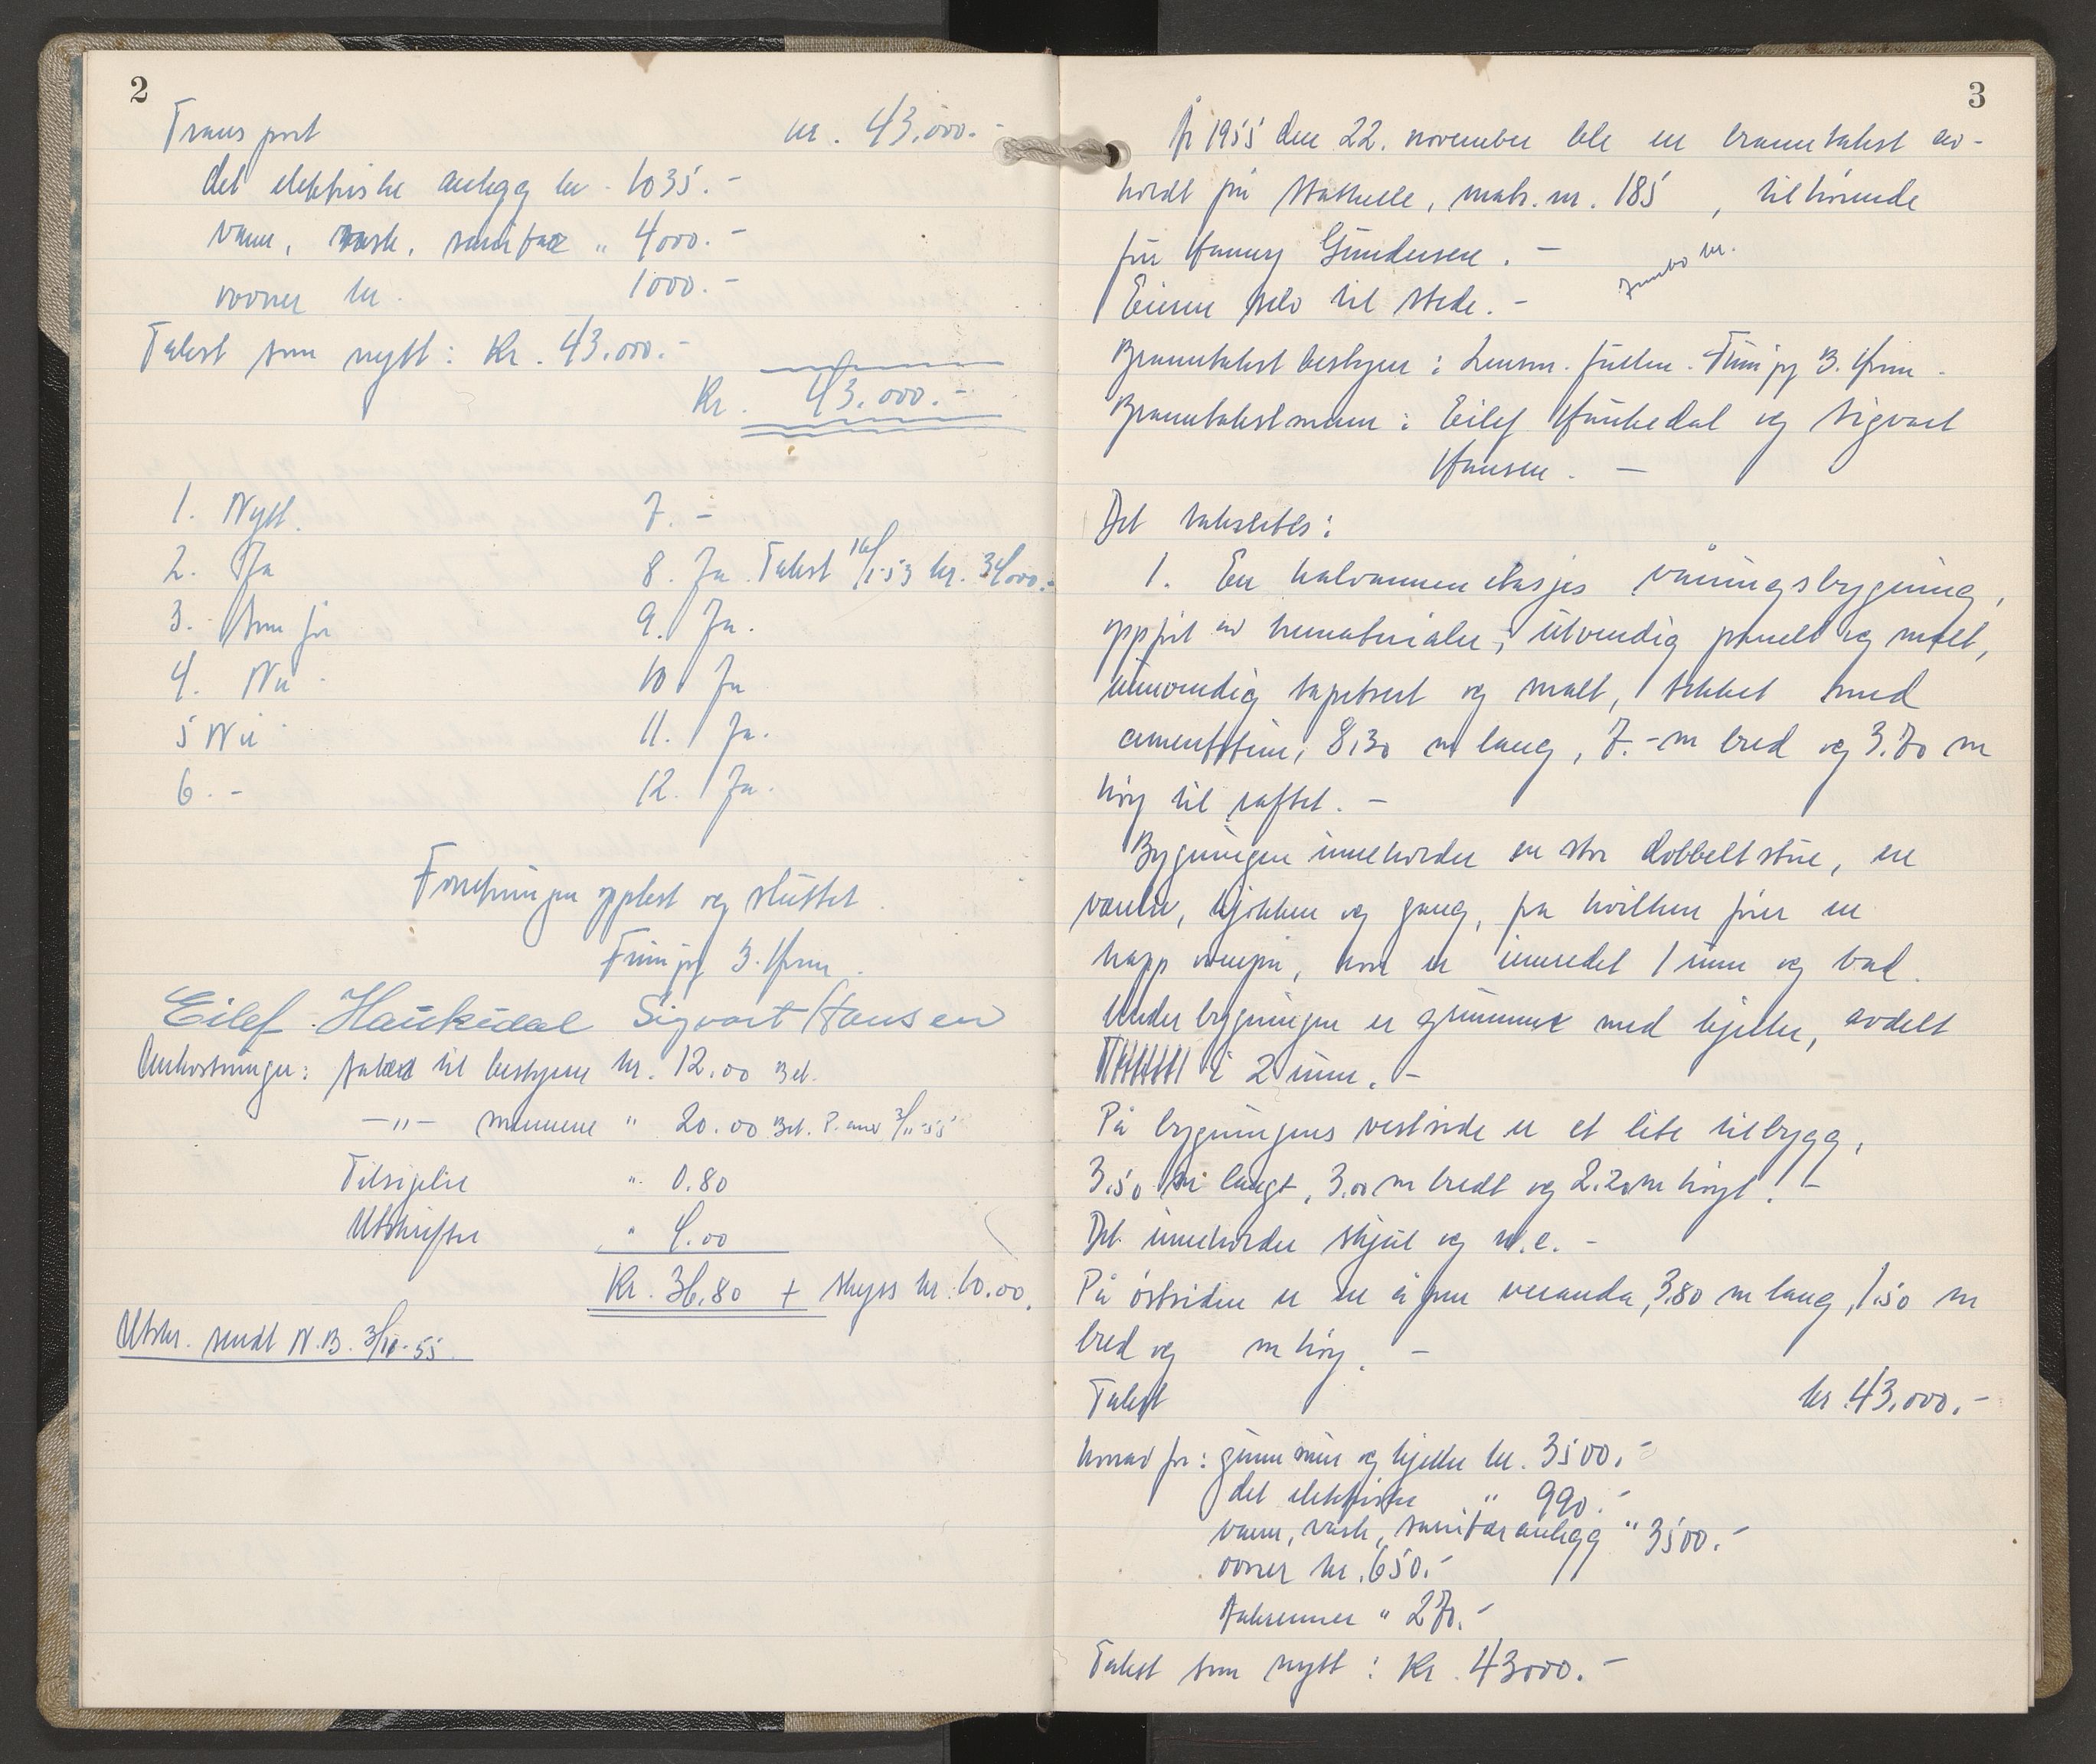 2
Transport kr. 43.000.-
det elektriske anlegg kr. 1035.-
vann, vask, sanitær " 4000.-
ovner kr. 1000.-
Takst som nytt: Kr. 43.000.-
Kr. 43.000.-
1. Nytt. 7. -
2. Ja 8. Ja. Takst 16/1-53 kr. 34000.-
3. Som før 9. Ja.
4. Nei 10. Ja
5 Nei 11. Ja.
6. - 12. Ja.
Forretningen opplest og sluttet.
Eilef Haukedal Sigvart Hansen
Omkostninger: Salær til bestyrer kr. 12.00 Bet.
-"- mennene " 20.00 Bet. 3/11-55
Tilsigelse " 0.80
Utskrifter " 4.00
Kr. 36.80 + skyss kr. 10.00.
Utskr. sendt N.B. 3/11-55.
3
År 1955 den 22. november ble en branntakst av-
holdt på Stathelle, matr. nr. 185, tilhørende
Gundersen. -
Eieren selv til stede. -
Branntakstbestyrer: Lensm. fullm.
Branntakstmenn: Eilef Haukedal og Sigvart
Hansen. -
Det takseretes:
1. En halvannen etasjes våningsbygning,
oppført av trematerialer, utvendig panelt og malt,
innvendig tapetsert og malt, tekket med
cementstein, 8,30 m lang, 7.- m bred og 3.70 m
høy til raftet. -
Bygningen inneholder en stor dobbelt stue, en
værelse, kjøkken og gang, fra hvilken fører en
trapp ovenpå, hvor er innredet 1 rum og bad.
Under bygningen er grunnmur med kjeller, avdelt
i 2 rum. -
På bygningens vestside er et lite tilbygg,
3.50 m langt, 3.00 m bredt og 2.20 m høyt. -
Det inneholder skjul og w.c. -
På østsiden er en åpen veranda, 3.80 m lang, 1.50 m
bred og m høy. -
Takst kr. 43.000.-
hvorav for: grunnmur og kjeller kr. 3500.-
det elektriske " 990.-
vann, vask, sanitær anlegg " 3500.-
ovner kr. 650.-
takrenner " 270.-
Takst som nytt: Kr. 43000.-